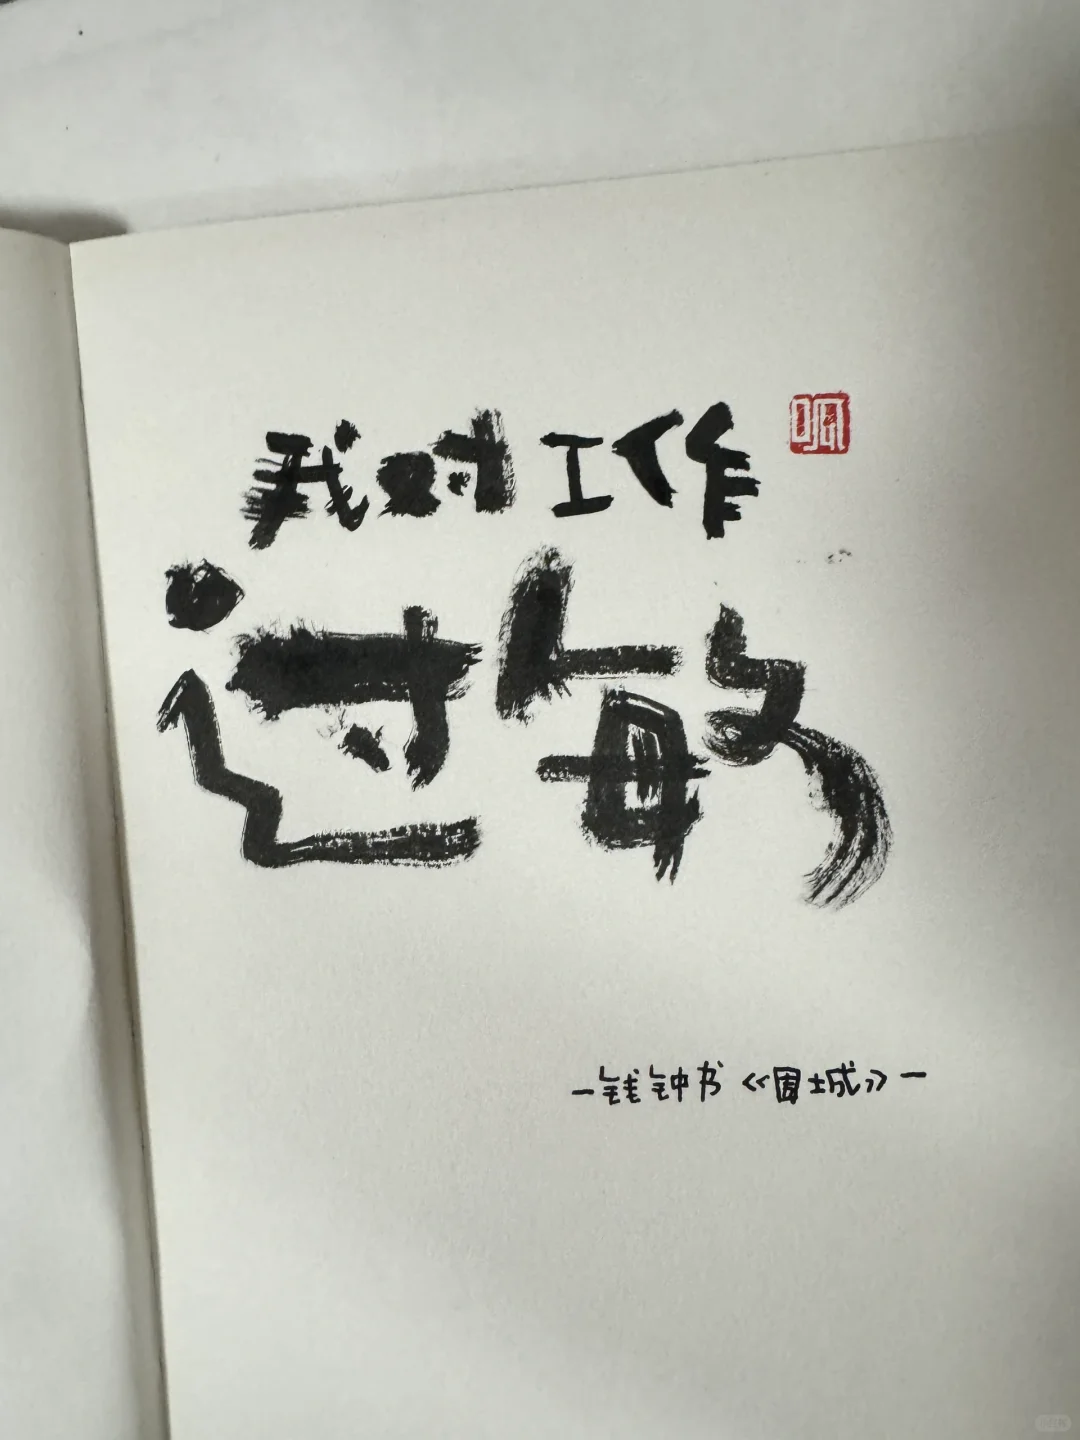 我对工作
过敏
—钱钟书《围城》—